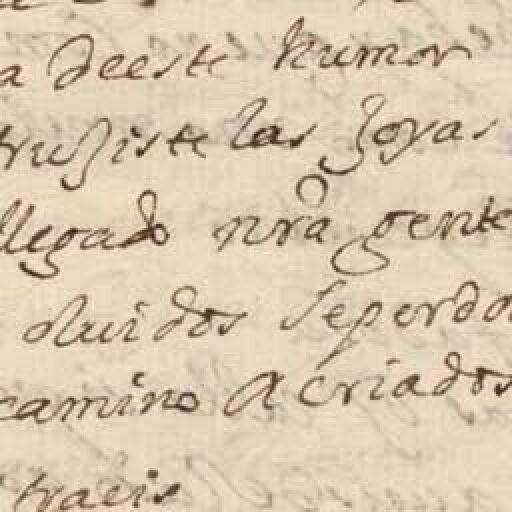 a deeste humor
truxiste las Joyas
llegado nrã gente
oluidos Seperdo
camino A criados
traeis